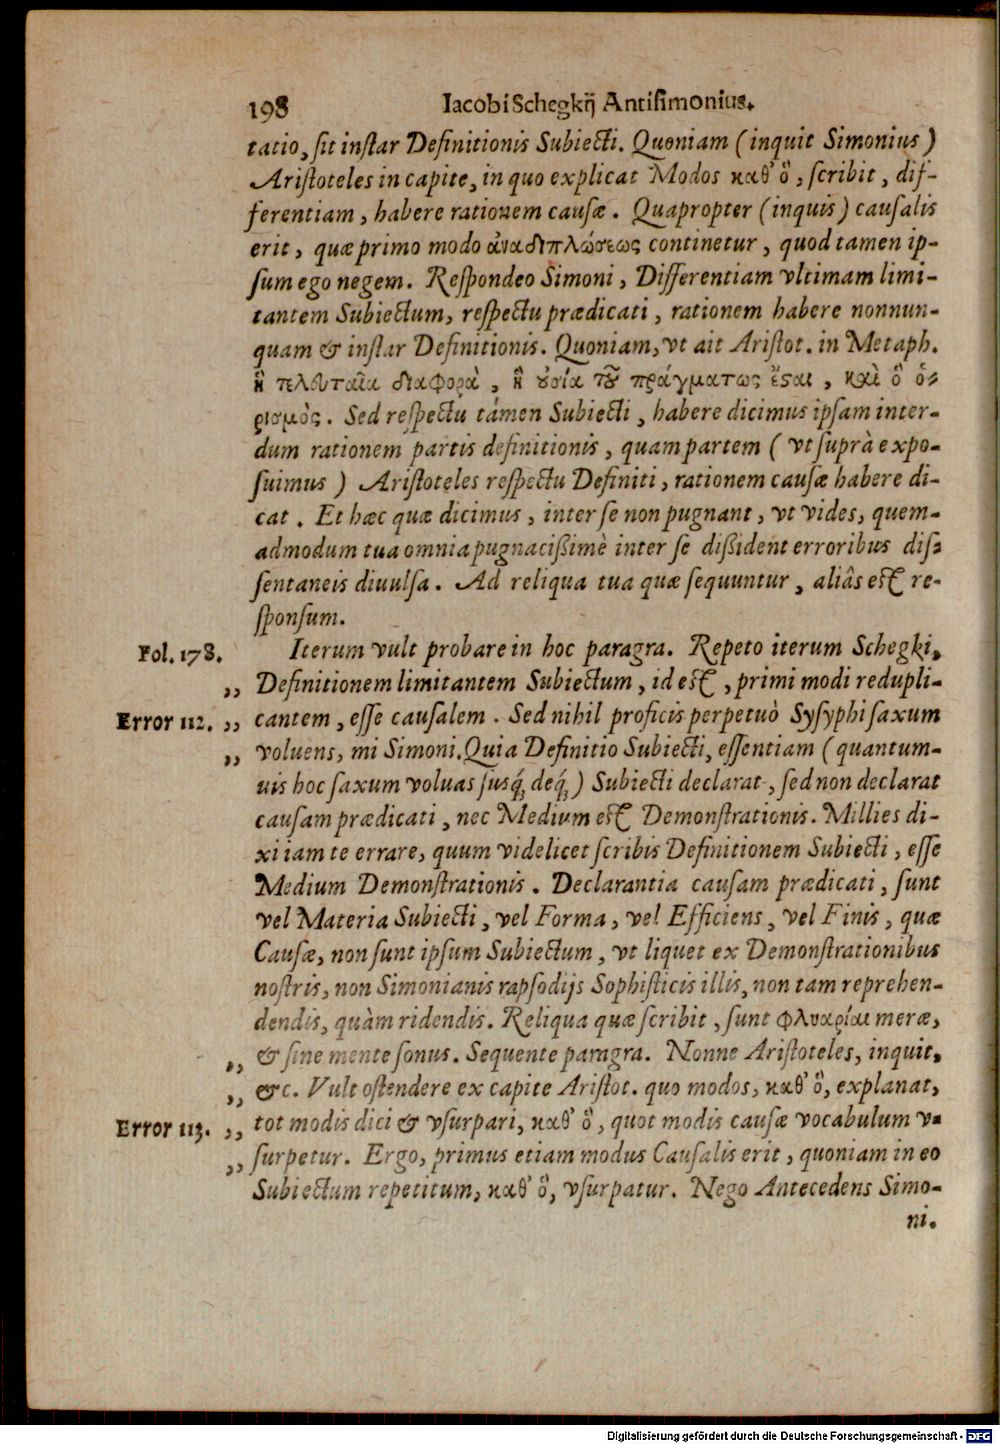 198 Iacobi Schegkij Antisimonius.
tatio, sit instar Definitionis Subiecti. Quoniam (inquit Simonius)
Aristoteles in capite, in quo explicat Modos καθ' ὃ, scribit, dif-
ferentiam, habere rationem causæ. Quapropter (inquis) causalis
erit, quæ primo modo ἀναδιπλώσεως continetur, quod tamen ip-
sum ego negem. Respondeo Simoni, Differentiam vltimam limi-
tantem Subiectum, respectu prædicati, rationem habere nonnun-
quam & instar Definitionis. Quoniam, vt ait Aristot. in Metaph.
ἣ τελευταῖα διαφορὰ, ἣ οὐσία τοῦ πράγματως ἔσαι, καὶ ὃ ὁ-
ρισμὸς. Sed respectu tamen Subiecti, habere dicimus ipsam inter-
dum rationem partis definitionis, quam partem (vt suprà expo-
suimus) Aristoteles respectu Definiti, rationem causæ habere di-
cat. Et hæc quæ dicimus, inter se non pugnant, vt vides, quem-
admodum tua omnia pugnacißimè inter se dißident erroribus dis-
sentaneis diuulsa. Ad reliqua tua quæ sequuntur, aliâs est re-
sponsum.
Fol. 178. Iterum vult probare in hoc paragra. Repeto iterum Schegki,
„ Definitionem limitantem Subiectum, id est, primi modi redupli-
Error 112. „ cantem, esse causalem. Sed nihil proficis perpetuò Sysyphi saxum
„ voluens, mi Simoni. Quia Definitio Subiecti, essentiam (quantum-
uis hoc saxum voluas susq́; deq́;) Subiecti declarat, sed non declarat
causam prædicati, nec Medium est Demonstrationis. Millies di-
xi iam te errare, quum videlicet scribis Definitionem Subiecti, esse
Medium Demonstrationis. Declarantia causam prædicati, sunt
vel Materia Subiecti, vel Forma, vel Efficiens, vel Finis, quæ
Causæ, non sunt ipsum Subiectum, vt liquet ex Demonstrationibus
nostris, non Simonianis rapsodijs Sophisticis illis, non tam reprehen-
dendis, quàm ridendis. Reliqua quæ scribit, sunt φλυαρίαι meræ,
„ & sine mente sonus. Sequente paragra. Nonne Aristoteles, inquit,
„ &c. Vult ostendere ex capite Aristot. quo modos, καθ' ὃ, explanat,
Error 113. „ tot modis dici & vsurpari, καθ' ὃ, quot modis causæ vocabulum v-
„ surpetur. Ergo, primus etiam modus Causalis erit, quoniam in eo
Subiectum repetitum, καθ' ὃ, vsurpatur. Nego Antecedens Simo-
ni.
Digitalisierung gefördert durch die Deutsche Forschungsgemeinschaft - DFG